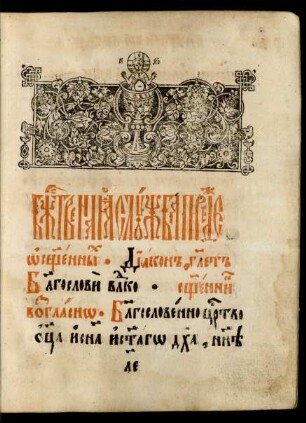 Бж҃твеннаѧ слꙋжба прежⷣе
ѡсщ҃еннаѧ · Дїаконъ, гл҃етъ
Благослови влⷣко · сщ҃енникъ
возгласитъ · Благословенно црⷭ҇тво
ѻц҃а и сн҃а и ст҃агѡ дх҃а, нн҃ѣ